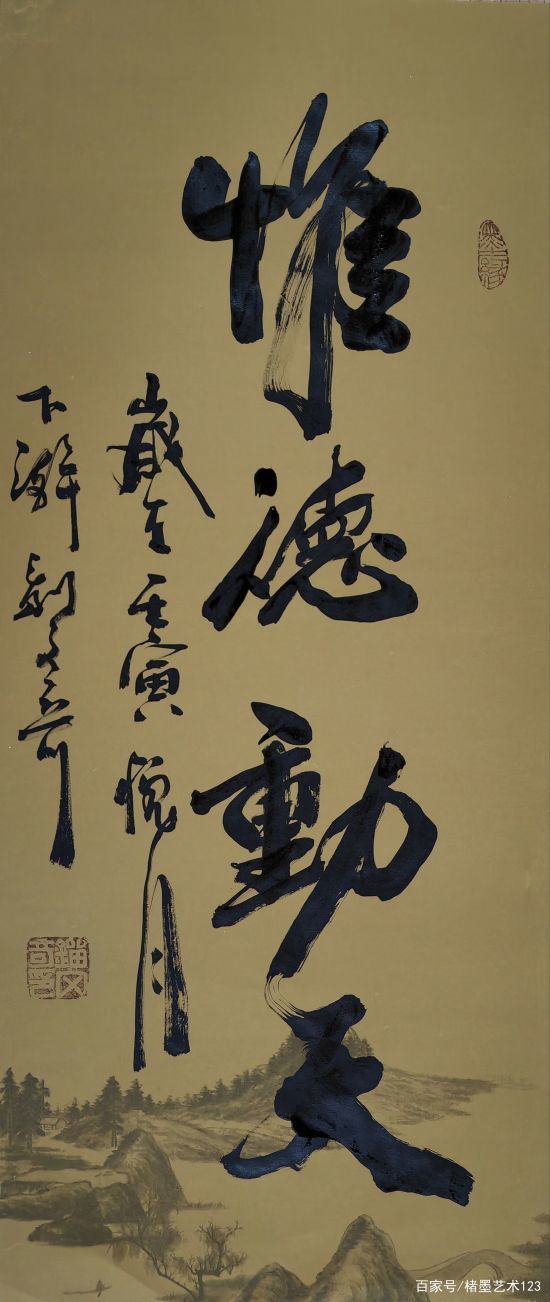 惟德動天
歲在壬寅槐月
下澣 劉文奇
百家号/楮墨艺术123